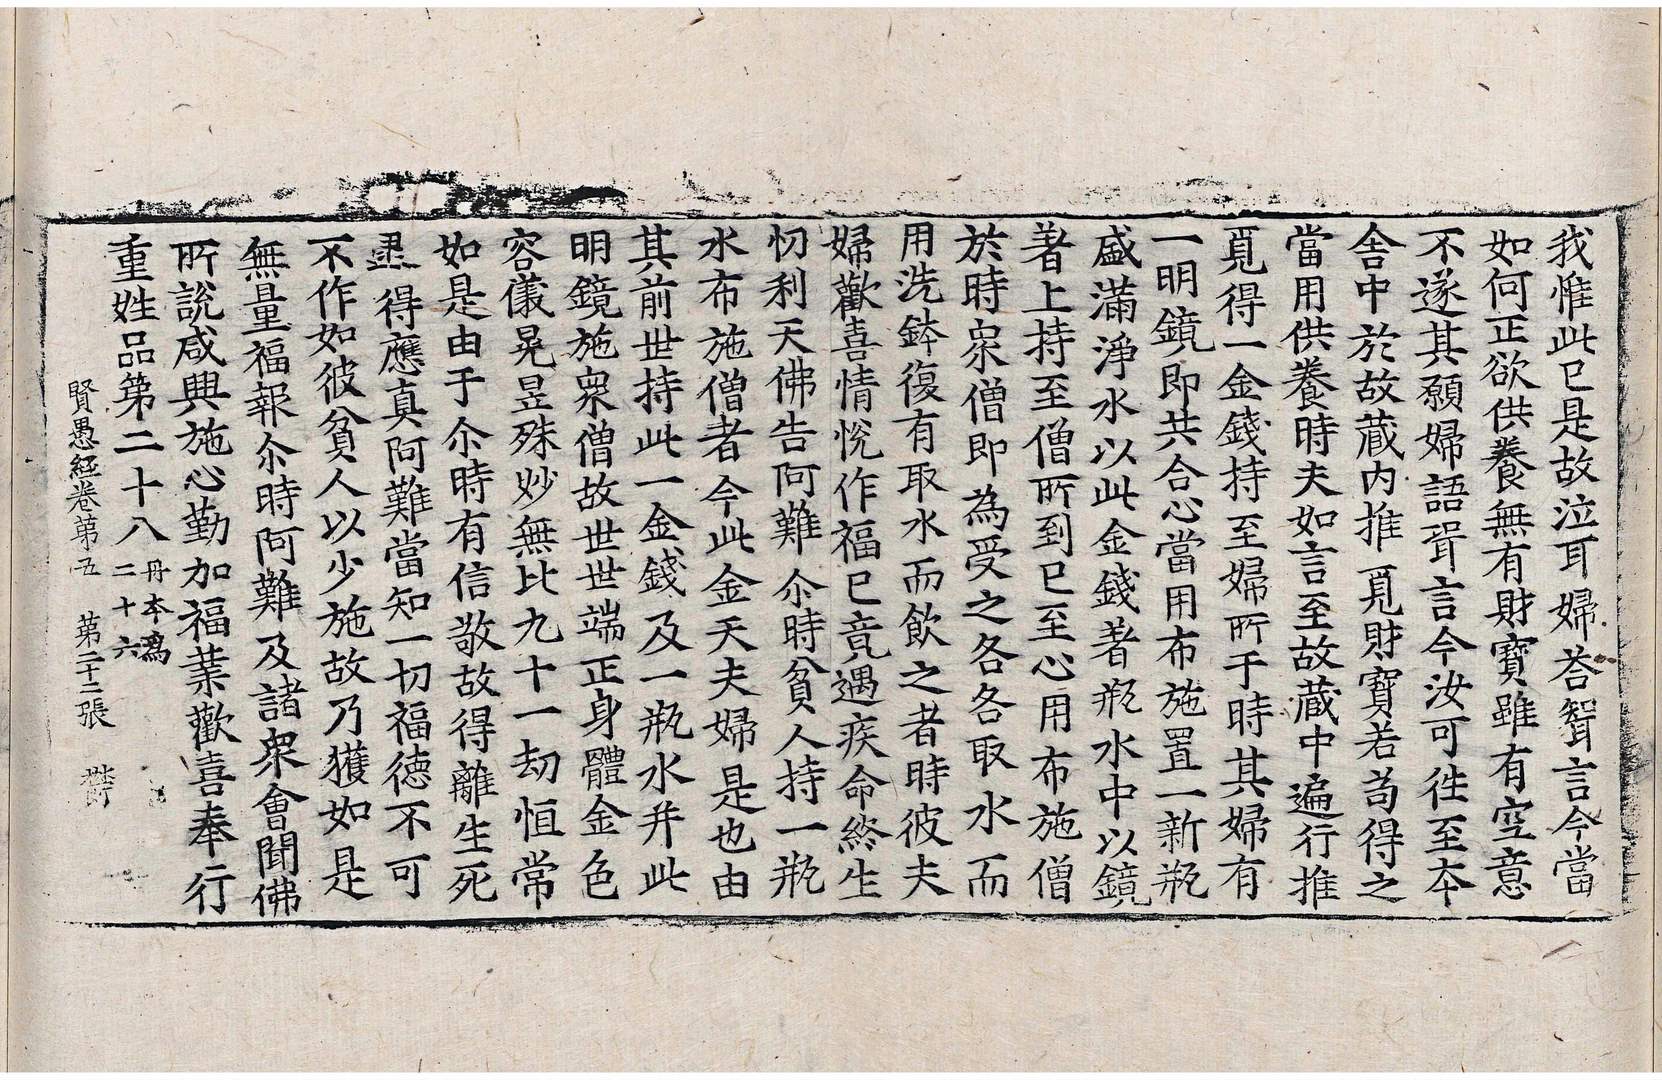 我惟此已是故泣耳婦荅聟言今當
如何正欲供養無有財寶雖有空意
不遂其願婦語聟言今汝可往至夲
舍中於故藏内推覓財寶若苟得之
當用供養時夫如言至故藏中遍行推
覓得一金錢持至婦所于時其婦有
一明鏡即共合心當用布施置一新瓶
盛滿淨水以此金錢著瓶水中以鏡
著上持至僧所到已至心用布施僧
於時衆僧即為受之各各取水而
用洗鉢復有取水而飲之者時彼夫
婦歡喜情悅作福已竟遇疾命終生
忉利天佛告阿難尒時貧人持一瓶
水布施僧者今此金天夫婦是也由
其前世持此一金錢及一瓶水并此
明鏡施衆僧故世世端正身體金色
容儀晃昱殊妙無比九十一劫恒常
如是由于尒時有信敬故得離生死
逮得應真阿難當知一切福德不可
不作如彼貧人以少施故乃獲如是
無量福報尒時阿難及諸衆會聞佛
所說咸興施心勤加福業歡喜奉行
重姓品第二十八 丹本為二十六
賢愚經卷第五 第二十二張